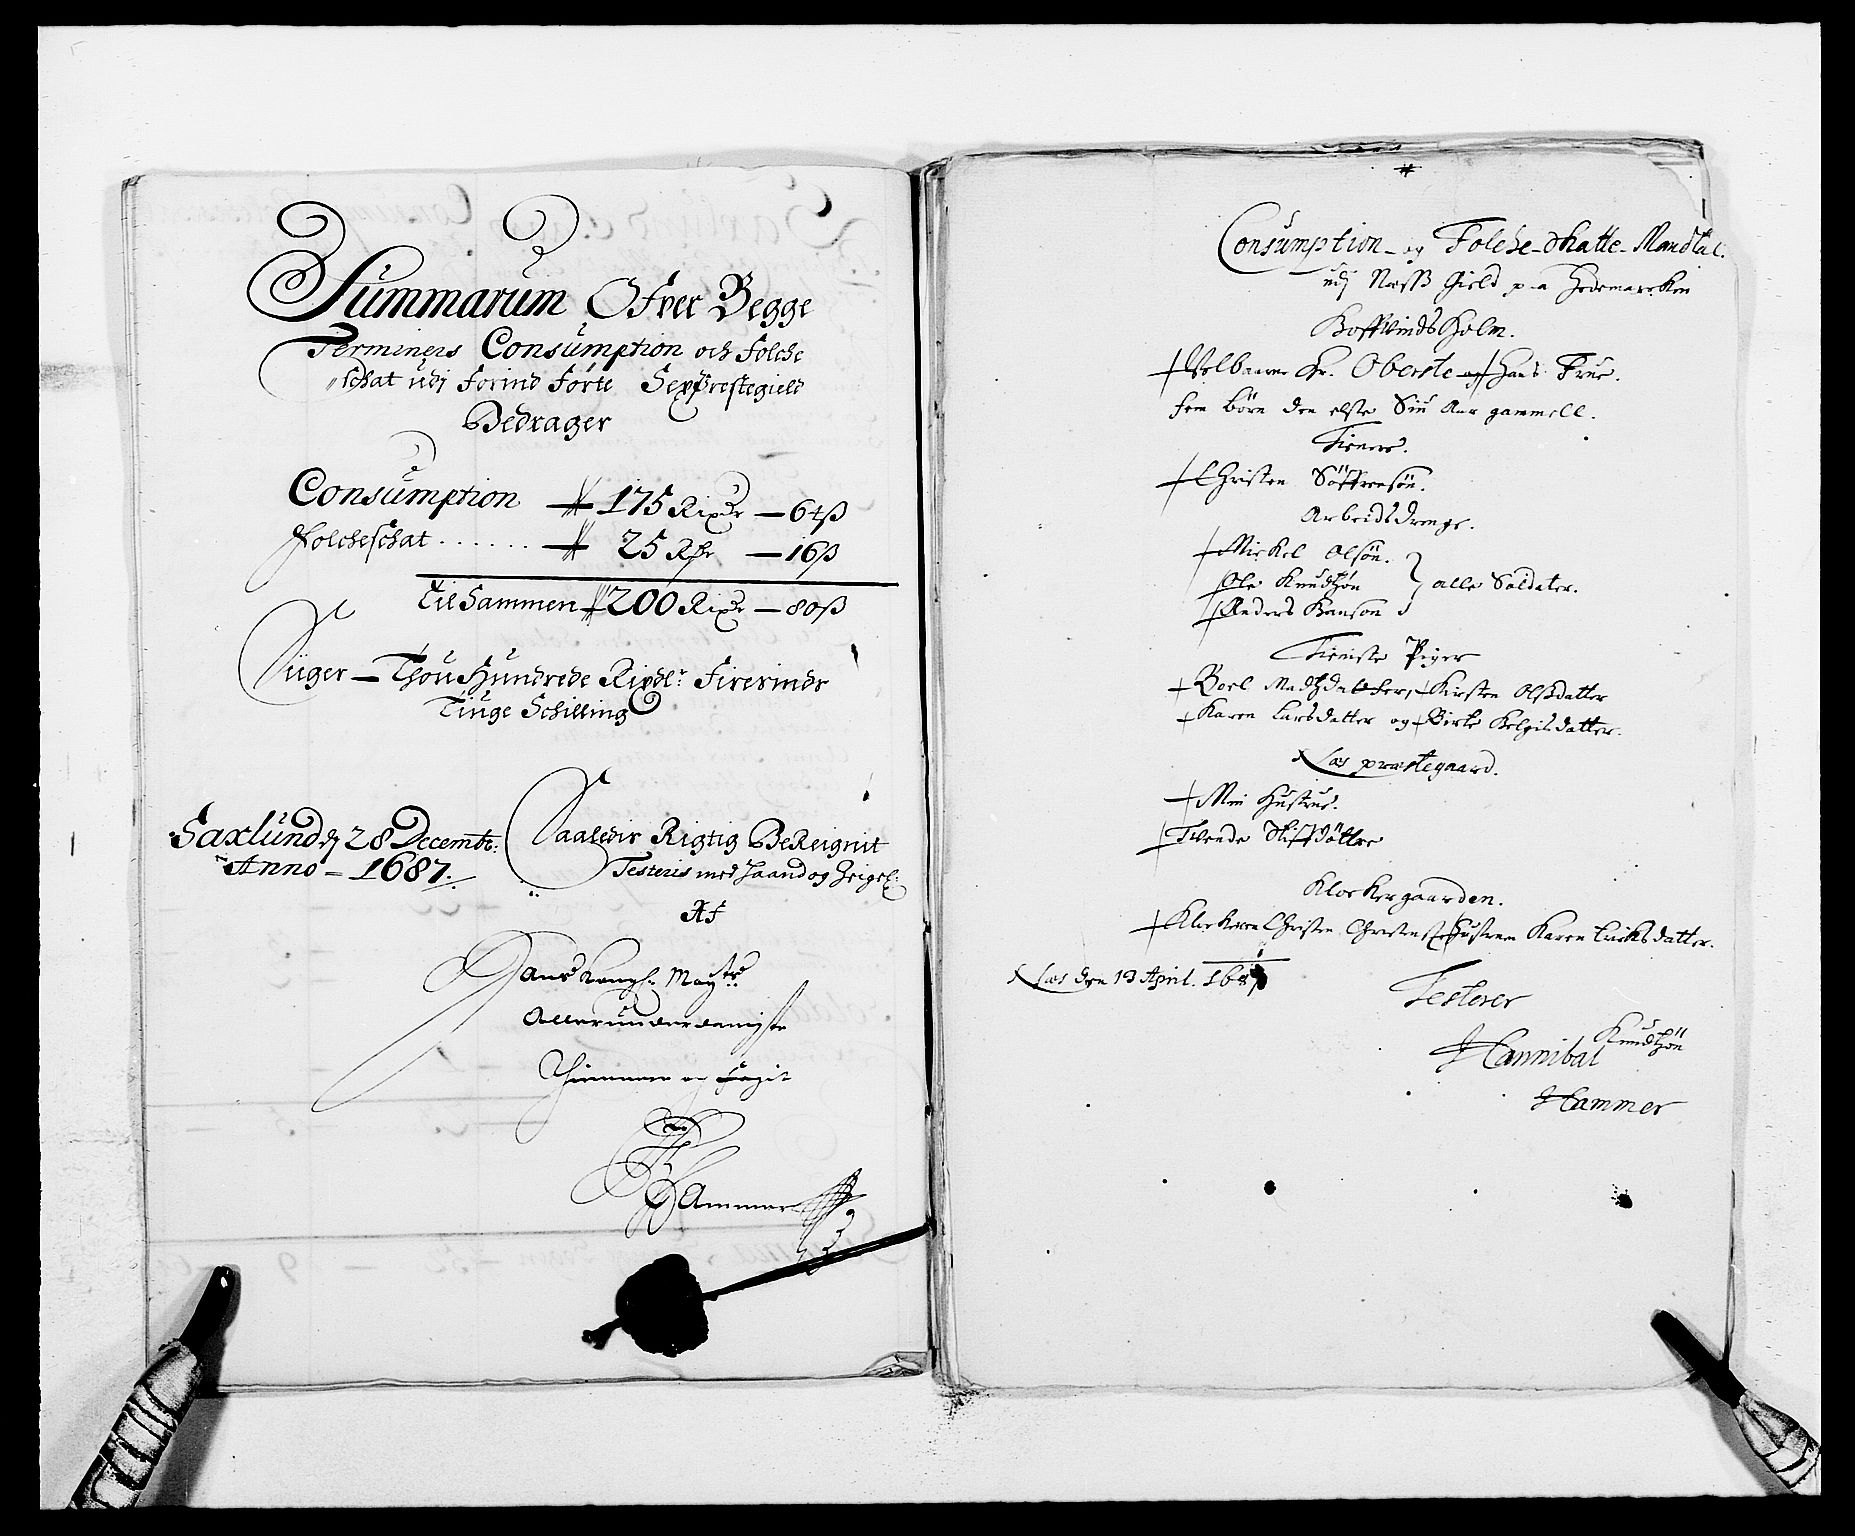 Summarum Ofver Begge
Terminers Consumption och Folche
schat udj Forind Førte Sex Prestegield
Bedrager
Consumption 175 Rixdr — 64ß
Folcheschat 25 Rdr — 16ß
Til Sammen 200 Rixdr — 80ß
Siiger — Thou Hundrede Rixdlr Firesinds
Tiuge Schilling
Saxlund d 28 Decembr:
Anno — 1687.
Saaledis Rigtig BeReignit
Testeris med Haand og Zeigel:
Af
Hans Kongl: Mayts
Allerunderdanigste
Thienner og Fogit
Hammer
Consumption- og Folche-Skatte-Mandtal
udj Næss Gield paa Hedemarcken
Hofflindsholm.
Velbaarne Hr. Oberste og Hans Frue.
fem børn den elste Siu Aar gammell.
Tienere.
Christen Søffrensøn.
Arbeidsdrenge.
Mickel Olsøn.
Ole Knudtzøn alle Soldater.
Anders Hansøn
Tieniste Piger
Boel Madtzdatter, Kirsten Olsdatter
Karen Larsdatter og Birte Helgisdatter.
Næs præstegaard.
Min Hustrue.
Tvende Stiffdøttre
Klockergaarden.
Klockeren Christen Christens Hustruen Karen Eriksdatter.
Næs den 13 April. 1687
Testerer
Hannibal Knudtzøn
Hammer